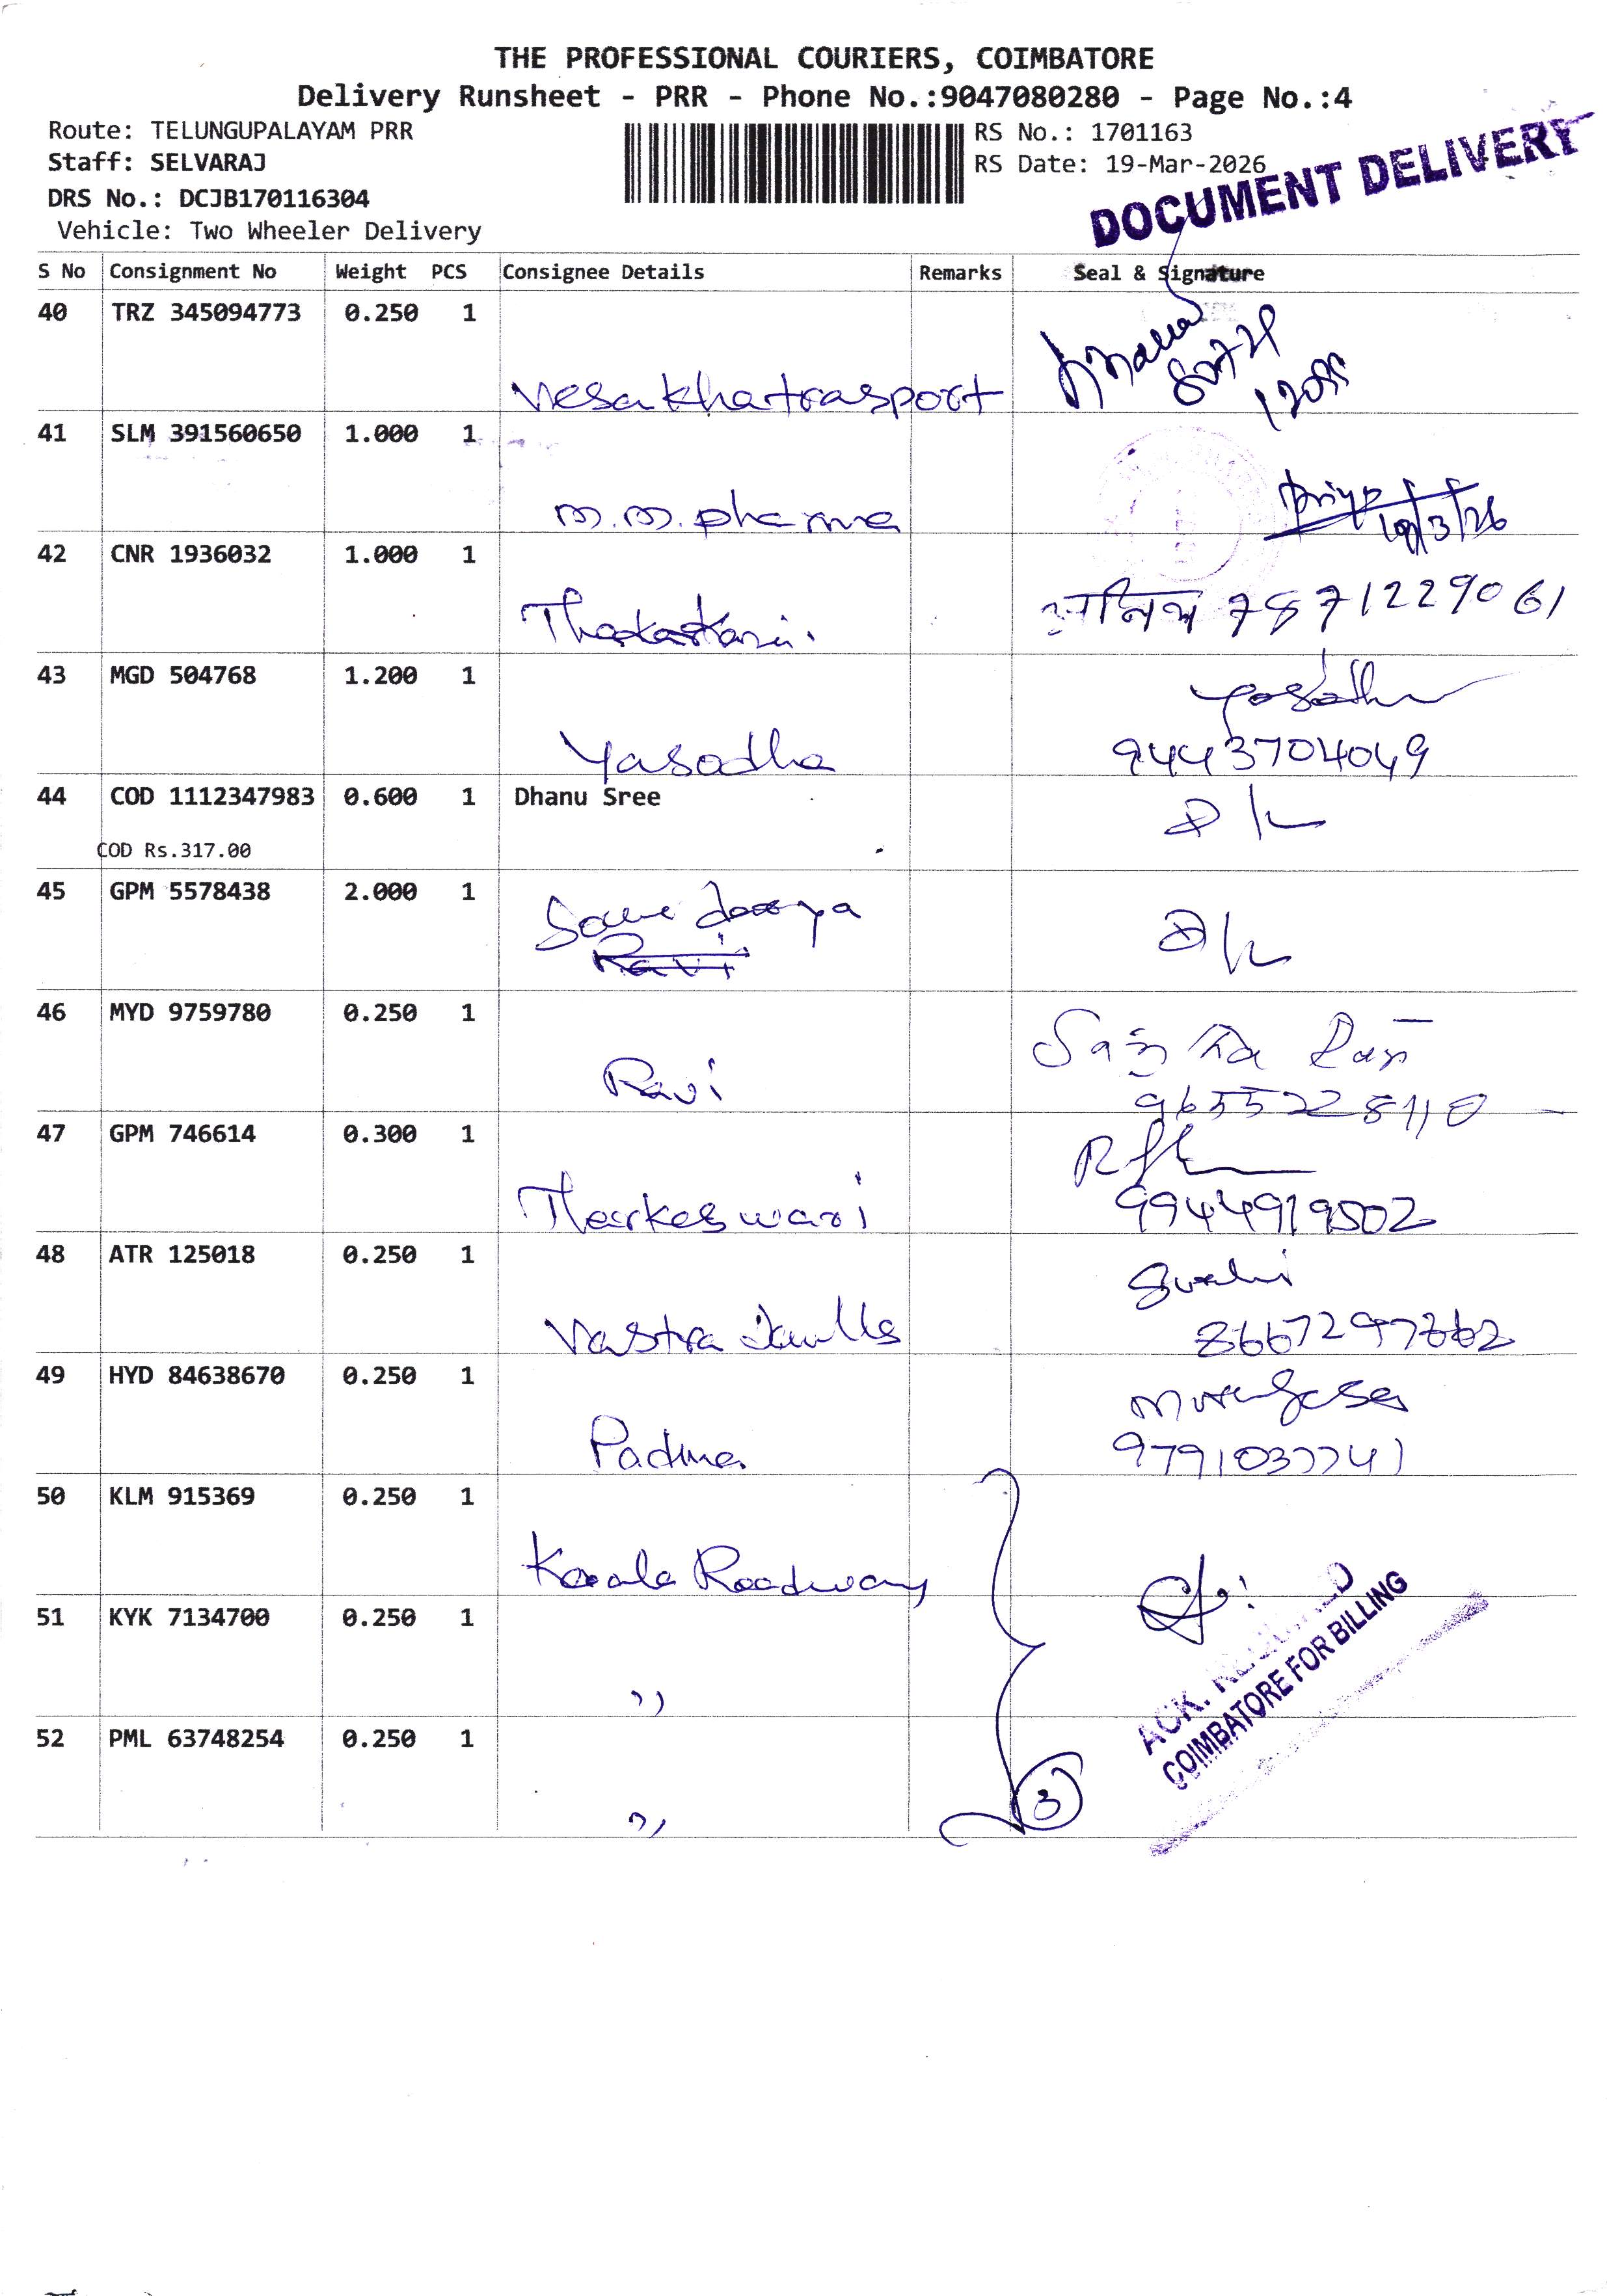 THE PROFESSIONAL COURIERS, COIMBATORE
Delivery Runsheet - PRR - Phone No.:9047080280 - Page No.:4
Route: TELUNGUPALAYAM PRR
Staff: SELVARAJ
DRS No.: DCJB170116304
Vehicle: Two Wheeler Delivery
RS No.: 1701163
RS Date: 19-Mar-2026
DOCUMENT DELIVERY
S No Consignment No Weight PCS Consignee Details Remarks Seal & Signature
40 TRZ 345094773 0.250 1
Vesakhatrasport
41 SLM 391560650 1.000 1
m.m. pharma Priya 19/3/26
42 CNR 1936032 1.000 1
7871229061
43 MGD 504768 1.200 1
Yasodha 9443704049
44 COD 1112347983 0.600 1 Dhanu Sree
COD Rs.317.00
45 GPM 5578438 2.000 1
Ravi
46 MYD 9759780 0.250 1
Ravi
9655228110
47 GPM 746614 0.300 1
Tharkeswari 9944919502
48 ATR 125018 0.250 1
Vastra
49 HYD 84638670 0.250 1
Padma
50 KLM 915369 0.250 1
Kerala Roadway
51 KYK 7134700 0.250 1
,,
52 PML 63748254 0.250 1
,,
3
ACK. RECEIVED
COIMBATORE FOR BILLING